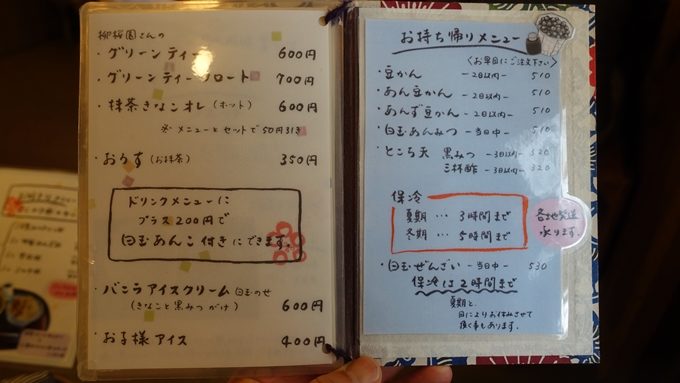 柳桜園さんの
・グリーンティー 600円
・グリーンティーフロート 700円
・抹茶きなこオレ(ホット) 600円
※メニューとセットで50円引き
・おうす(お抹茶) 350円
ドリンクメニューに
プラス200円で
白玉あんこ付きにできます。
・バニラアイスクリーム 白玉のせ
(きなこと黒みつがけ) 600円
・お子様アイス 400円
お持ち帰りメニュー
〈お早目にご注文下さい〉
・豆かん -2日以内- 510
・あん豆かん -2日以内- 510
・あんず豆かん -2日以内- 510
・白玉あんみつ -当日中- 510
・ところ天 黒みつ -3日以内- 320
三杯酢 -3日以内- 320
保冷
夏期…3時間まで
冬期…5時間まで
各地発送
承ります。
・白玉ぜんざい -当日中- 530
保冷は2時間まで
夏期と
日によりお休みさせて
頂く事もあります。